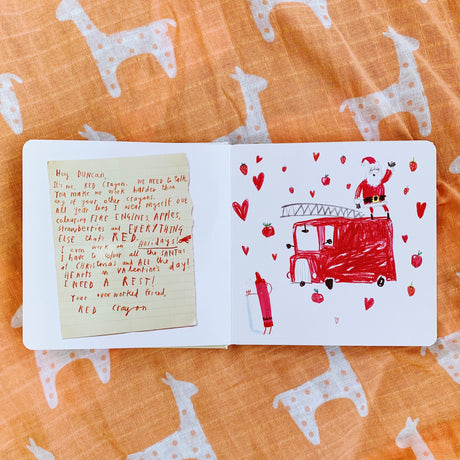 Hey DUNCAN,
It's me, RED Crayon. WE NEED to talk.
You make me work harder than
any of your other crayons.
All year long I wear myself out
colouring FIRE ENGINES, APPLES,
strawberries and EVERYTHING
ELSE that's RED.
I even work on HoLidays!
I have to colour all the SANTAS
at CHRISTMAS and ALL the
HEARTS on VALENTINE'S day!
I NEED A REST!
Your overworked friend,
RED Crayon